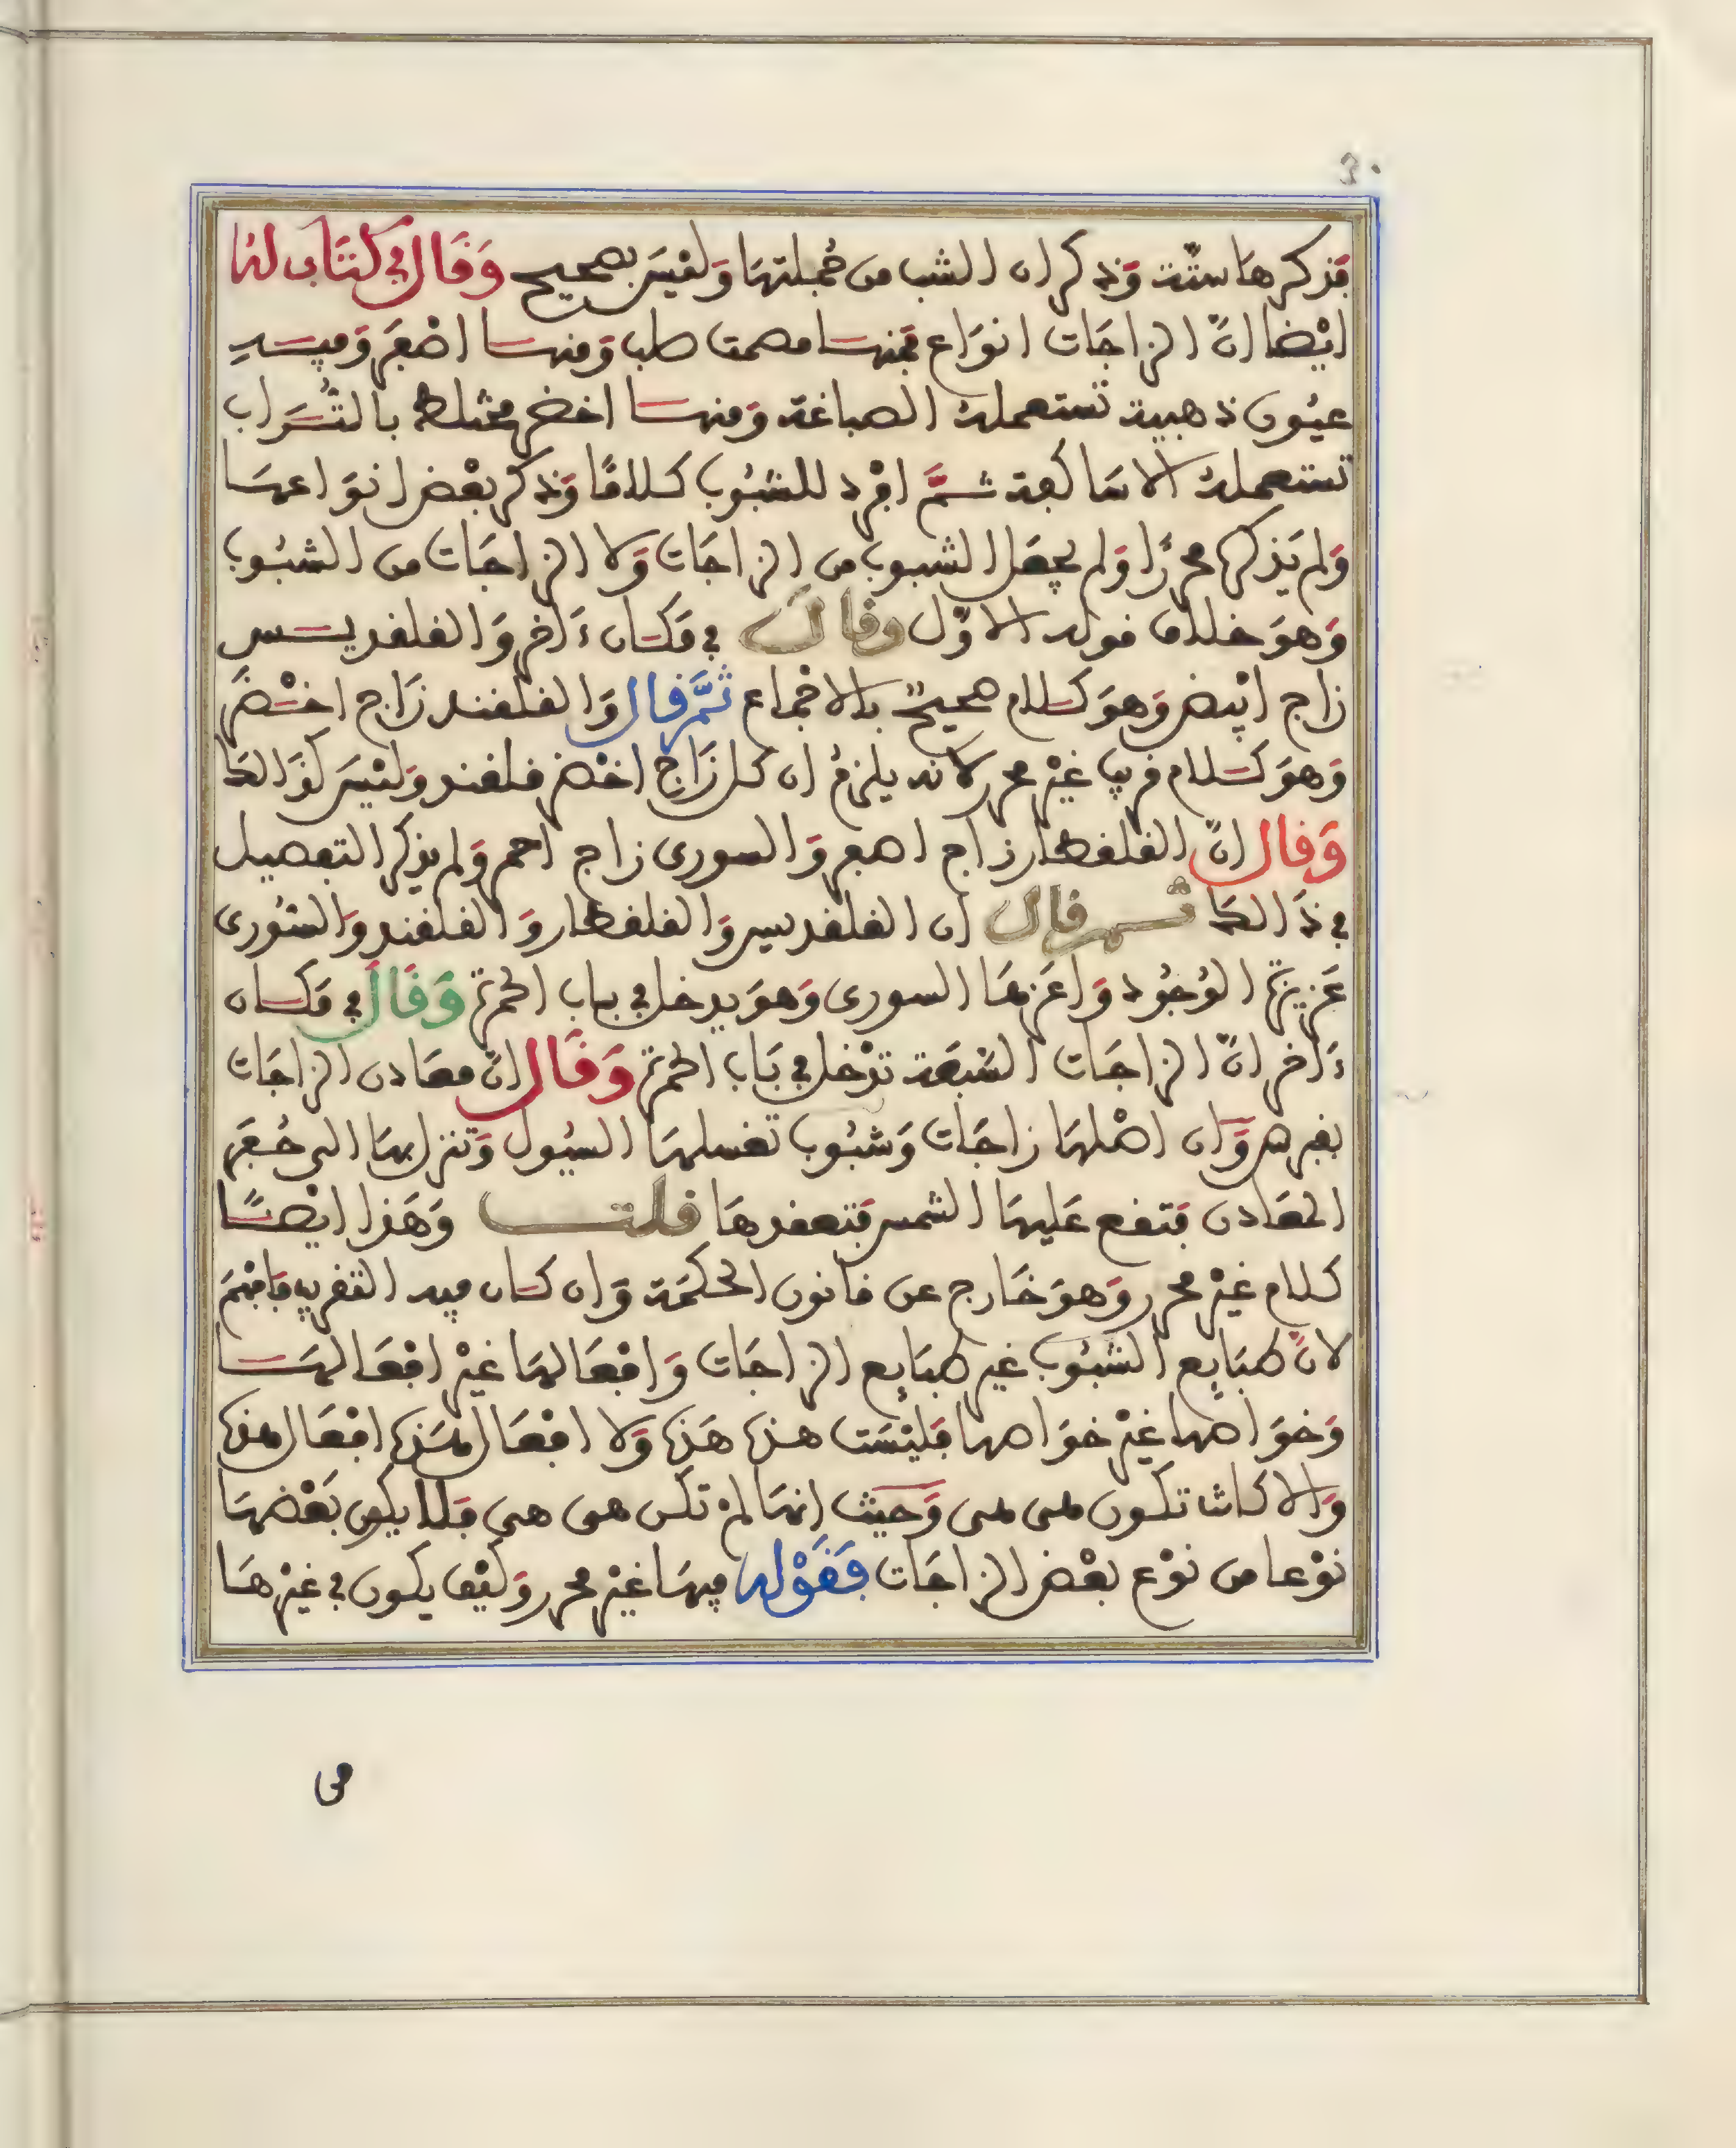 فذكرها ستة وذكر ان الشب من جملتها وليس بصحيح وقال في كتاب له
ايضا ان الزاجات انواع فمنها مصمت صلب ومنها اصفر وفيه
عيون ذهبية تستعمله الصباغة ومنها اخضر مختلط بالتراب
تستعمله الاساكفة ثم افرد للشبوب كلاما وذكر بعض انواعها
ولم يذكرها محررا ولم يجعل الشبوب من الزاجات ولا الزاجات من الشبوب
وهو خلاف قوله الاول وقال في مكان ءاخر والقلقديس
زاج ابيض وهو كلام صحيح بالاجماع ثم قال والقلقند زاج اخضر
وهو كلام قريب غير محرر لانه يلزم ان كل زاج اخضر قلقند وليس كذالك
وقال ان القلقطار زاج اصفر والسورى زاج احمر ولم يذكر التفصيل
في ذالك ثم قال ان القلقديس والقلقطار والقلقند والسورى
عزيزة الوجود واعزها السورى وهو يدخل في باب الحمرة وقال في مكان
ءاخر ان الزاجات السبعة تدخل في باب الحمرة وقال ان معادن الزاجات
بقبرس وان اصلها زاجات وشبوب تغسلها السيول وتنزل بها الى حفر
المعادن فتقع عليها الشمس فتعقدها قلت وهذا ايضا
كلام غير محرر وهو خارج عن قانون الحكمة وان كان فيه التقريب فافهم
لان طبايع الشبوب غير طبايع الزاجات وافعالها غير افعالها
وخواصها غير خواصها فليست هذه هذه ولا افعال هذه افعال هذه
والا كانت تكون هى هى وحيث انها لم تكن هى هى فلا يكون بعضها
نوعا من نوع بعض الزاجات فقوله فيها غير محرر وكيف يكون في غيرها
من